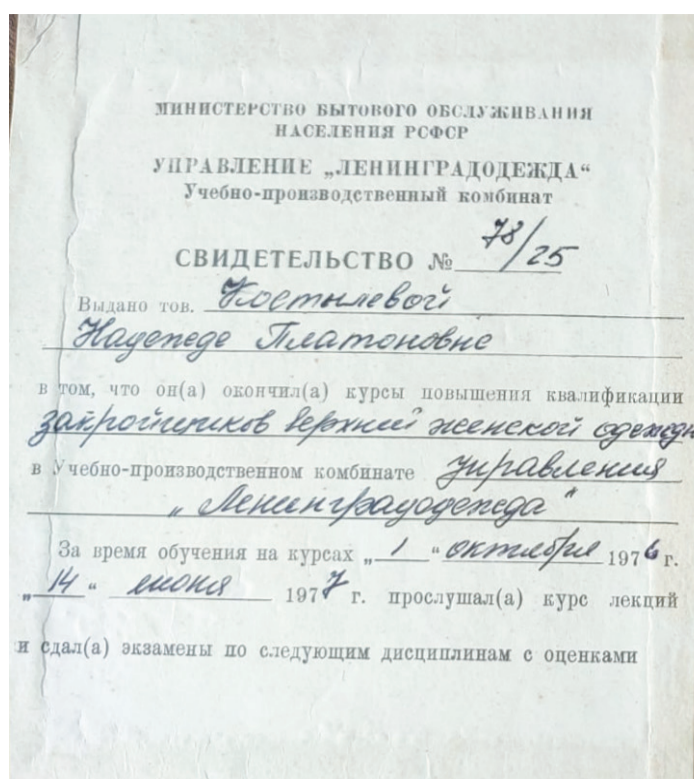 МИНИСТЕРСТВО БЫТОВОГО ОБСЛУЖИВАНИЯ
НАСЕЛЕНИЯ РСФСР
УПРАВЛЕНИЕ „ЛЕНИНГРАДОДЕЖДА“
Учебно-производственный комбинат
СВИДЕТЕЛЬСТВО № 78/25
Выдано тов. Костылевой
Надежде Платоновне
в том, что он(а) окончил(а) курсы повышения квалификации
закройщиков верхней женской одежды
в Учебно-производственном комбинате Управления
„Ленинградодежда“
За время обучения на курсах „1“ октября 1976 г.
„14“ июня 1977 г. прослушал(а) курс лекций
и сдал(а) экзамены по следующим дисциплинам с оценками